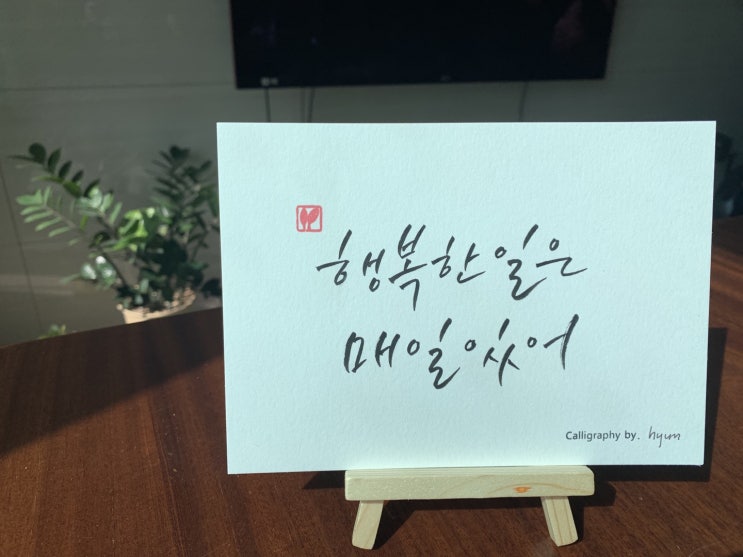 행복한 일은
매일 있어
Calligraphy by. hyum